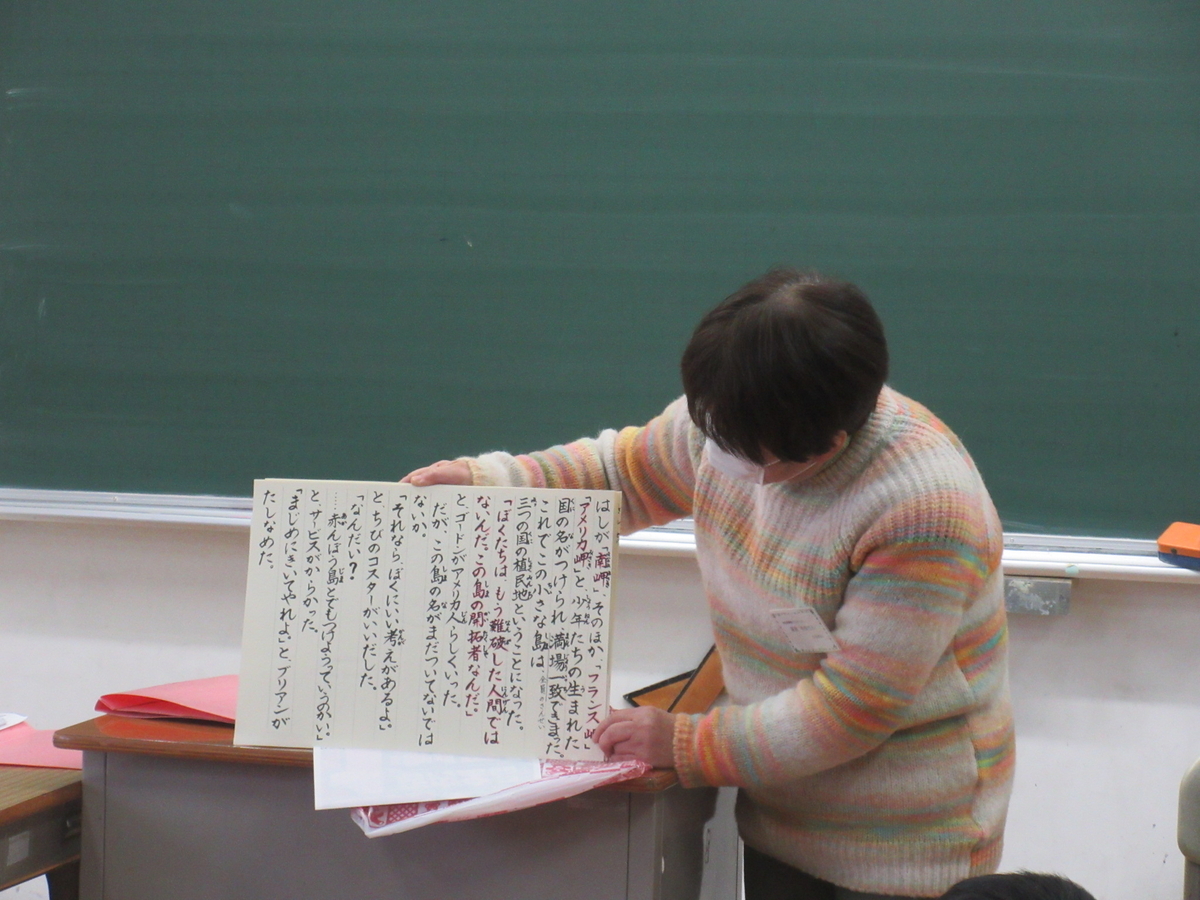 はしが「南岬」、そのほか、「フランス岬」
「アメリカ岬」と少年たちの生まれた
国の名がつけられ、満場一致できまった。
これでこの小さな島は、
三つの国の植民地ということになった。
「ぼくたちは、もう難破した人間では
ないんだ。この島の開拓者なんだ。」
と、ゴードンがアメリカ人らしくいった。
だが、この島の名がまだついてないでは
ないか。
「それなら、ぼくにいい考えがあるよ。」
と、ちびのコスターがいいだした。
「なんだい?
……赤んぼう島とでもつけようっていうのかい。」
と、サービスがからかった。
「まじめにきいてやれよ。」と、ブリアンが
たしなめた。